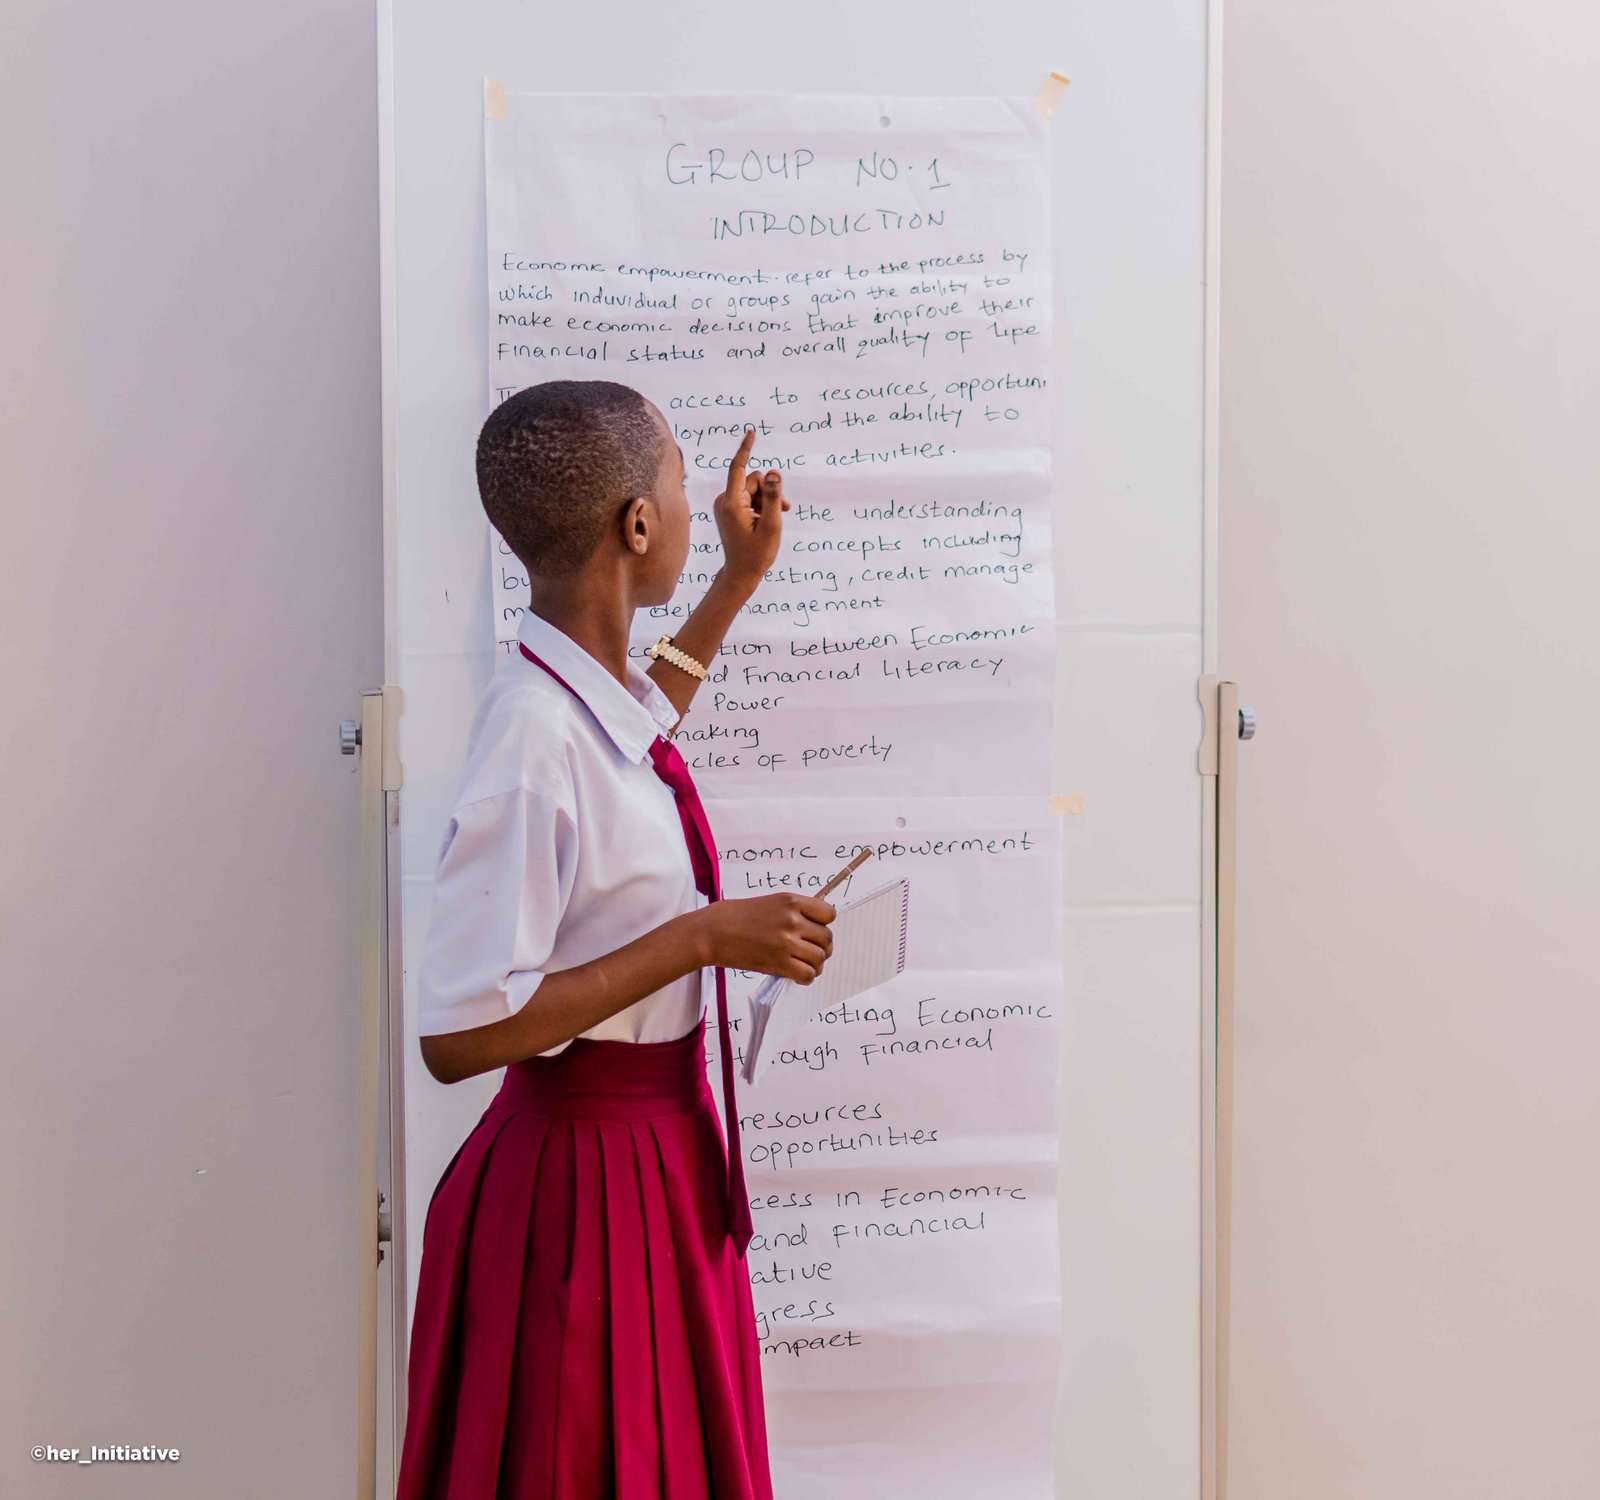 GROUP NO. 1
INTRODUCTION
Economic empowerment. refer to the process by
which induvidual or groups gain the ability to
make economic decisions that improve their
Financial status and overall quality of life
access to resources, opportuni
loyment and the ability to
economic activities.
the understanding
concepts including
esting, credit manage
management
tion between Economic
nd Financial Literacy
Power
making
cles of poverty
onomic empowerment
Literacy
moting Economic
through Financial
resources
opportunities
cess in Economic
and Financial
ative
gress
impact
©her_Initiative